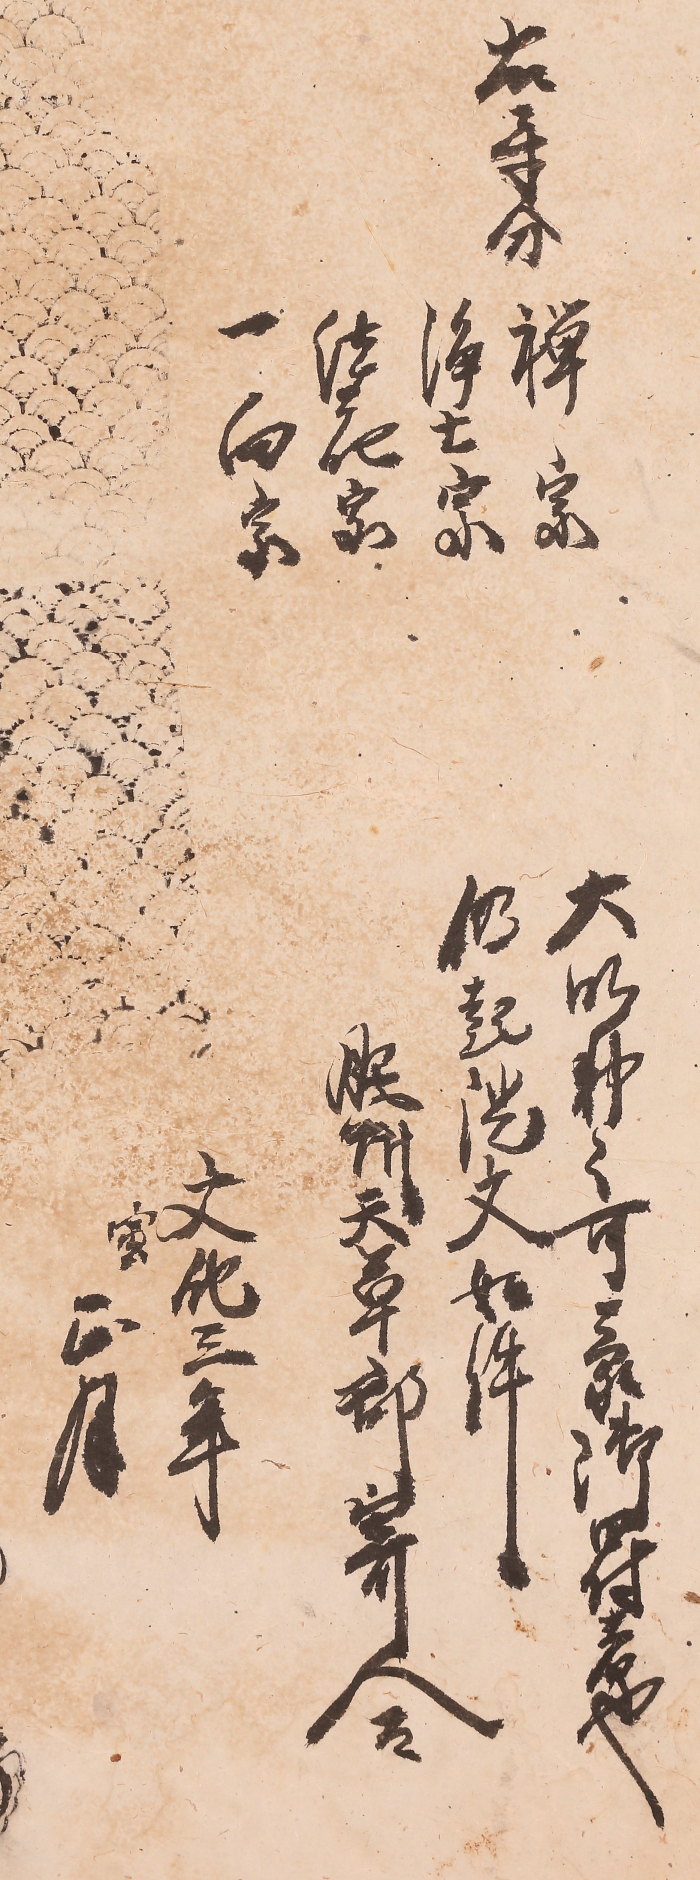 右等分
禅宗
浄土宗
法花宗
一向宗
大明神之可蒙御罰者也
仍起請文如件
肥州天草郡寄人
文化三年
寅
正月